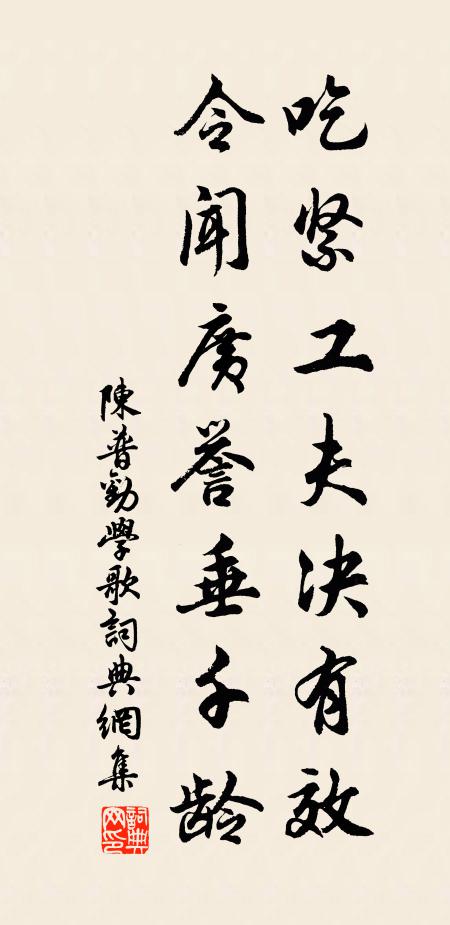 吃紧工夫决有效
令闻廣誉垂千龄
陳普勸學歌詞典網集
詞典網印